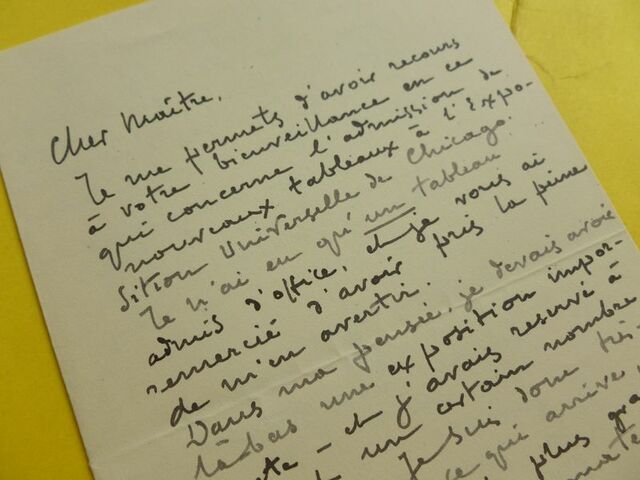 Cher Maître,
Je me permets d'avoir recours
à votre bienveillance en ce
qui concerne l'admission de
nouveaux tableaux à l'Expo-
sition Universelle de Chicago.
Je n'ai eu qu'un tableau
admis d'office, et je vous ai
remercié d'avoir pris la peine
de m'en avertir.
Dans ma pensée, je devais avoir
làbas une exposition impor-
te - et j'avais reservé à
t un certain nombre
Je suis donc très
ce qui arrive,
plus gra